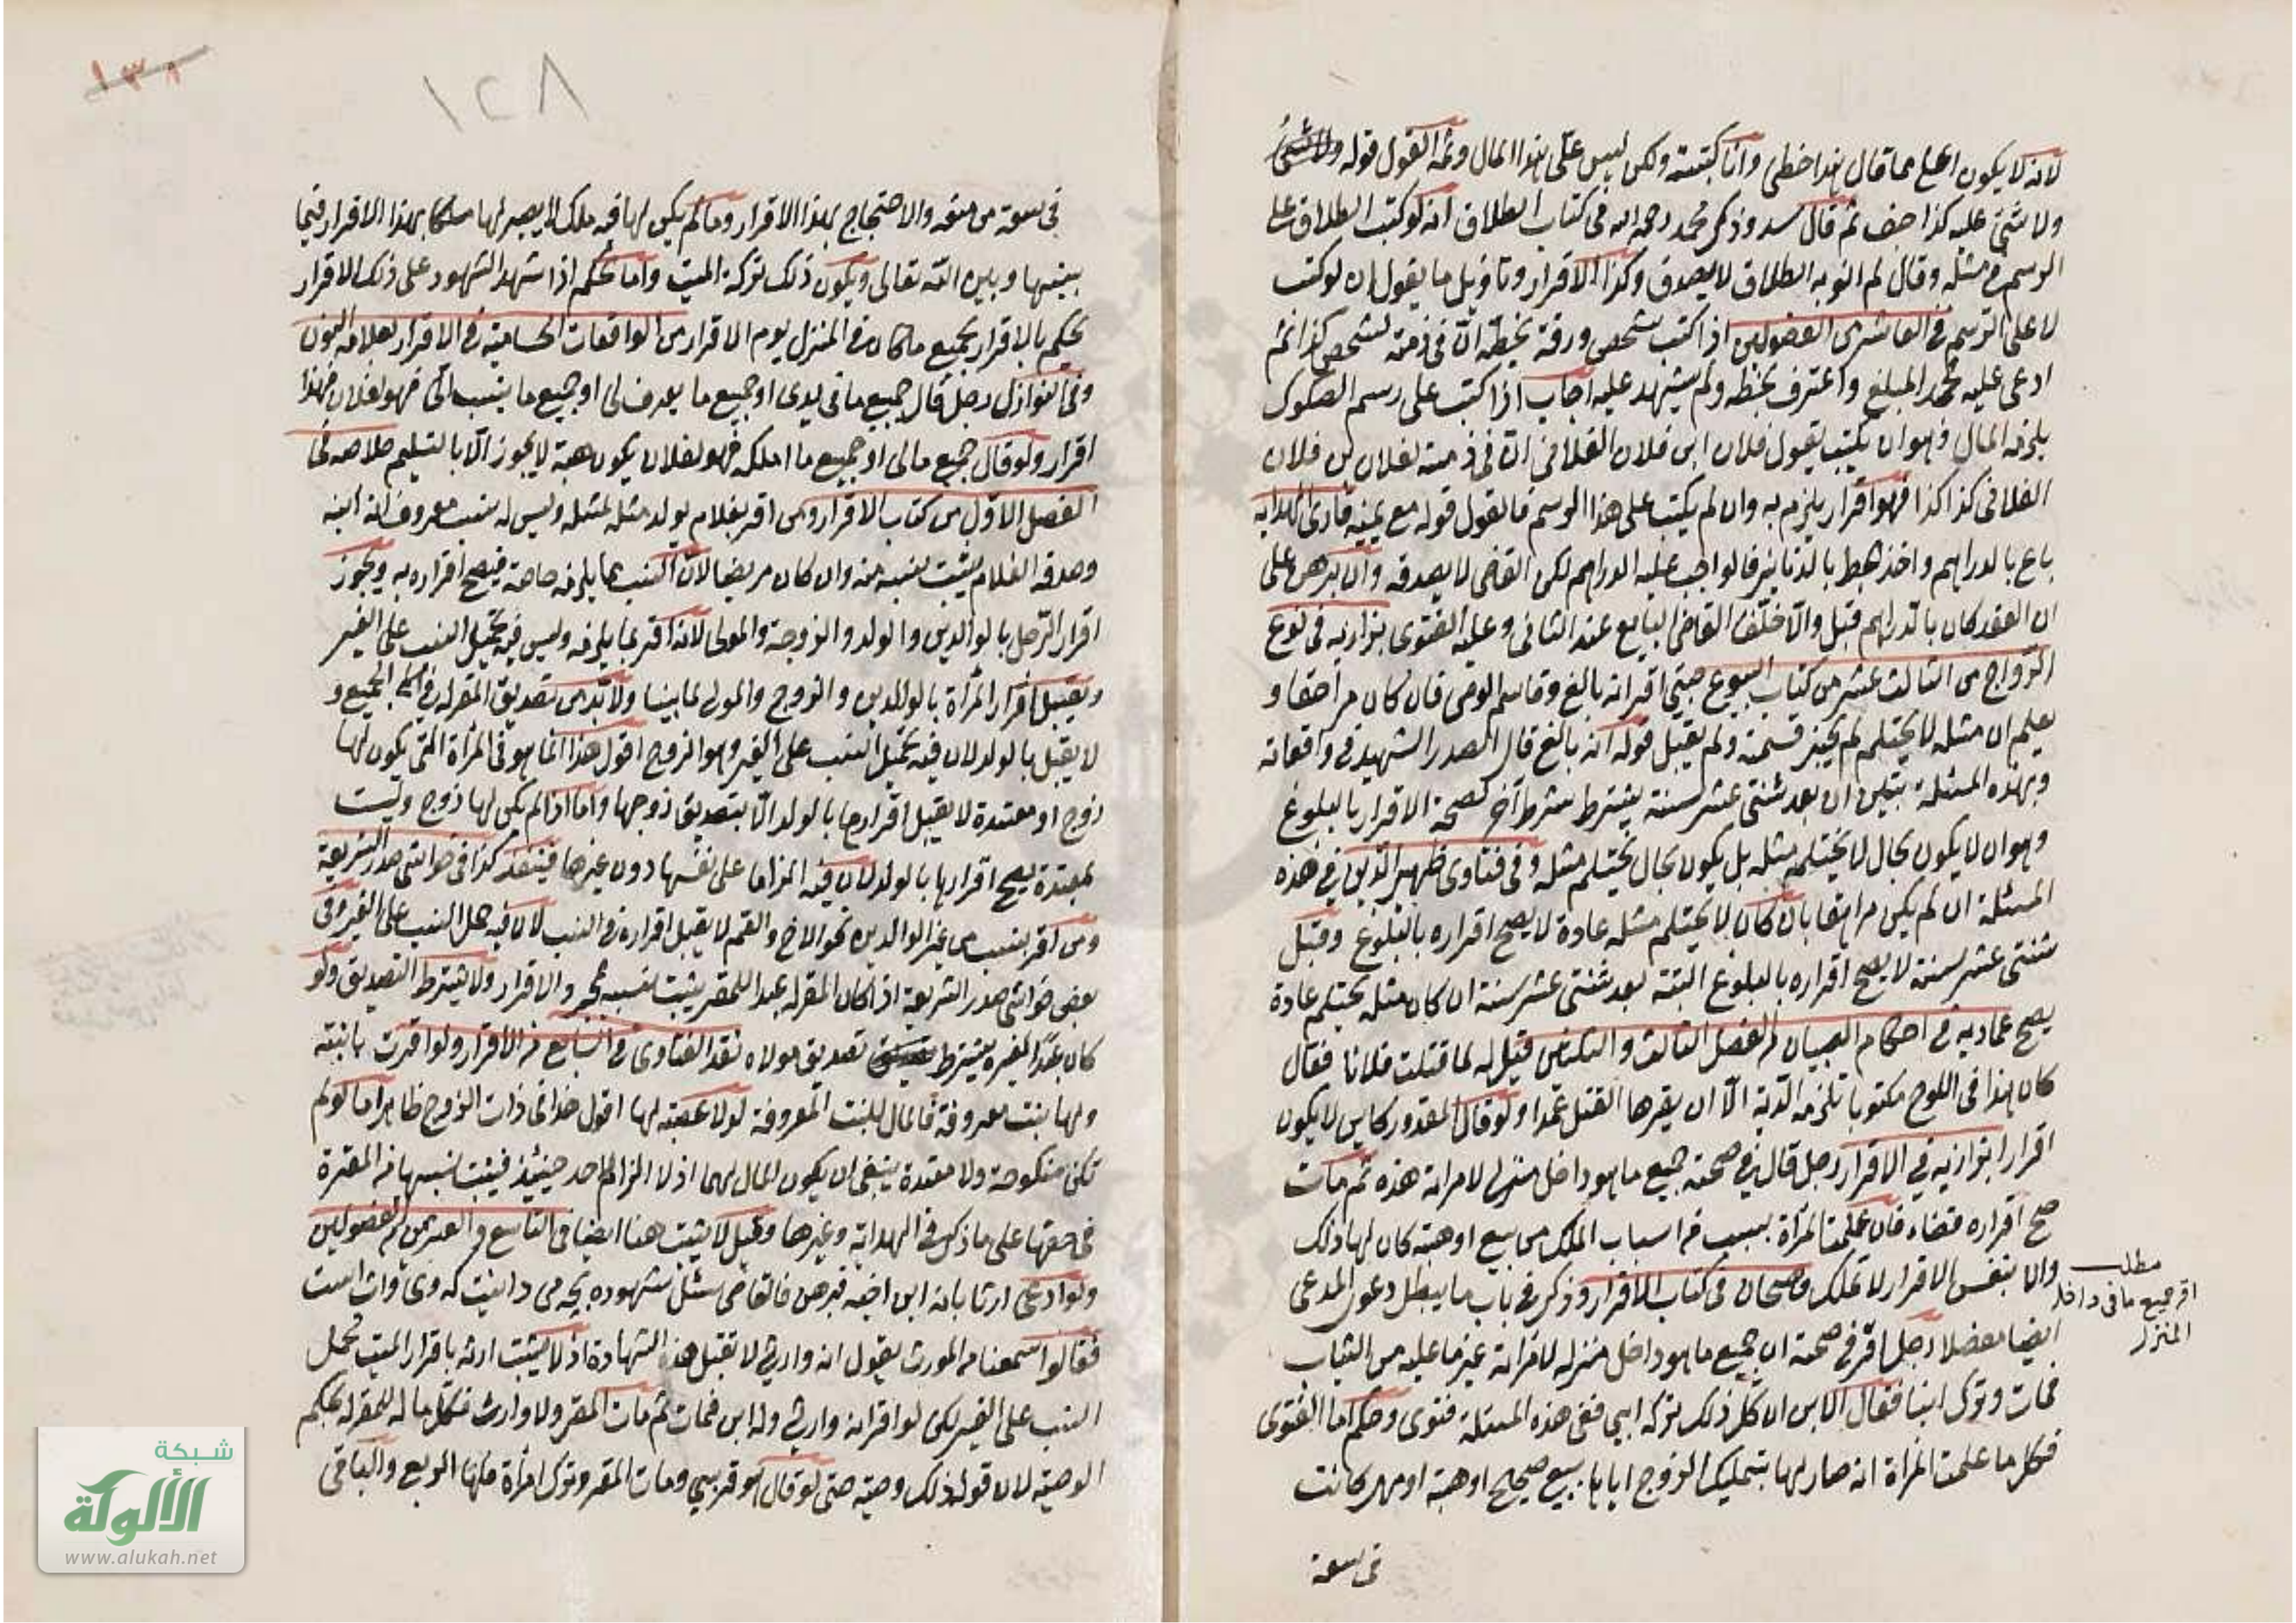 لانه لا يكون اعلى مما قال هذا خطي وانا كتبته ولكن ليس علي هذا المال وثمة القول قوله
ولا شئ عليه كذا ثم قال وذكر محمد رحمه الله في كتاب الطلاق انه لو كتب الطلاق على
الرسم ثم قال لم انو به الطلاق لا يصدق وكذا الاقرار وتاويل ما يقول ان لو كتب
لا على الرسم في العاشر من الفصولين اذا كتب شخص ورقة بخطه ان في ذمته لشخص كذا ثم
ادعى عليه المبلغ واعترف بخطه ولم يشهد عليه اجاب اذا كتب على رسم الصكوك
يلزمه المال وهو ان يكتب يقول فلان ابن فلان الفلاني ان في ذمته لفلان بن فلان
الفلاني كذا كذا فهو اقرار يلزم به وان لم يكتب على هذا الرسم فالقول قوله مع يمينه قارئ الهداية
باع بالدراهم واخذ بالدنانير فالواجب عليه الدراهم لكن القاضي لا يصدقه وان برهن على
ان العقد كان بالدراهم قبل والا حلف القاضي البايع عند الثاني وعليه الفتوى بزازيه في نوع
الرواج من الثالث عشر من كتاب البيوع صبي اقر انه بالغ وقاسم الوصي فان كان مراهقا و
يعلم ان مثله لا يحتلم لم يجز قسمته ولم يقبل قوله انه بالغ قال الصدر الشهيد في واقعاته
وبهذه المسئلة يتبين ان بعد ثنتي عشر سنة يشترط شرط آخر لصحة الاقرار بالبلوغ
وهو ان لا يكون بحال لا يحتلم مثله بل يكون بحال يحتلم مثله وفي فتاوى ظهير الدين في هذه
المسئلة ان لم يكن مراهقا بان كان لا يحتلم مثله عادة لا يصح اقراره بالبلوغ وقبل
ثنتي عشر سنة لا يصح اقراره بالبلوغ البتة بعد ثنتي عشر سنة ان كان مثله يحتلم عادة
يصح عماديه في احكام الصبيان من الفصل الثالث والثلثين قيل له لما قتلت فلانا فقال
كان هذا في اللوح مكتوبا تلزمه الدية الا ان يقرها القتل عمدا ولو قال المقدور كاين لا يكون
اقرارا بزازيه في الاقرار رجل قال في صحته جميع ما هو داخل منزلي لامراته هذه ثم مات
صح اقراره قضاء فان علمت المرأة بسبب من اسباب الملك من بيع او هبة كان لها ذلك
والا بنفس الاقرار لا تملك في كتاب الاقرار وذكر في باب ما يبطل دعوى المدعي
ايضا مفصلا رجل اقر في صحته ان جميع ما هو داخل منزله لامراته غير ما عليه من الثياب
فمات وترك ابنا فقال الابن ان كل ذلك تركه ابي ففي هذه المسئلة فتوى وحكم اما الفتوى
فكل ما علمت المرأة انه صار لها بتمليك الزوج اياها ببيع صحيح او هبة او مهر كانت
في سعة
مطلب
اقر جميع ما في داخل
المنزل
١٢٨
١٣٨
في سعة من منعه والاحتجاج بهذا الاقرار وما لم يكن لها فيه ملك لا يصير لها ملكا بهذا الاقرار فيما
بينها وبين الله تعالى ويكون ذلك تركة الميت واما الحكم اذا شهد الشهود على ذلك الاقرار
يحكم بالاقرار بجميع ما كان في المنزل يوم الاقرار من الواقعات الحسامية في الاقرار بعلامة النون
وفي النوازل رجل قال جميع ما في يدي او جميع ما يعرف لي او جميع ما ينسب الي فهو لفلان فهذا
اقرار ولو قال جميع مالي او جميع ما املكه فهو لفلان يكون هبة لا يجوز الا بالتسليم خلاصه في
الفصل الاول من كتاب الاقرار ومن اقر بغلام يولد مثله لمثله وليس له نسب معروف انه ابنه
وصدقه الغلام يثبت نسبه منه وان كان مريضا لان النسب مما يلزمه خاصة فيصح اقراره به ويجوز
اقرار الرجل بالوالدين والولد والزوجة والمولى لانه اقر بما يلزمه وليس فيه تحميل النسب على الغير
ويقبل اقرار المرأة بالوالدين والزوج والمولى لما بينا ولا بد من تصديق المقر له في الجميع و
لا يقبل بالولد لان فيه تحميل النسب على الغير وهو الزوج اقول هذا انما هو في المرأة التي يكون لها
زوج او معتدة لا يقبل اقرارها بالولد الا بتصديق زوجها واما اذا لم يكن لها زوج وليست
بمعتدة يصح اقرارها بالولد لان فيه الزاما على نفسها دون غيرها فينفذ كذا في حواشي صدر الشريعة
ومن اقر بنسب من غير الوالدين نحو الاخ والعم لا يقبل اقراره في النسب لان فيه حمل النسب على الغير وفي
بعض حواشي صدر الشريعة اذا كان المقر له عبدا للمقر يثبت نسبه بمجرد الاقرار ولا يشترط التصديق ولو
كان عبدا لغيره يشترط تصديق مولاه نقد الفتاوى في السابع من الاقرار ولو اقرت بابنته
ولها بنت معروفة فالمال للبنت المعروفة لو لا عصبة لها اقول هذا في ذات الزوج ظاهر اما لو لم
تكن منكوحة ولا معتدة ينبغي ان يكون المال لهما اذ لا الزام لاحد حينئذ فيثبت نسبها من المقرة
في حقها على ما ذكر في الهداية وغيرها وقيل لا يثبت هنا ايضا في التاسع والعشرين من الفصولين
ولو ادعى ارثا بانه ابن اخيه فبرهن فالقاضي سئل شهوده
فقالوا سمعنا من المورث يقول انه وارثي لا تقبل هذه الشهادة اذ لا يثبت ارثه باقرار الميت تحمل
النسب على الغير لكن لو اقر انه وارثي وله ابن فمات ثم مات المقر ولا وارث فكل ماله للمقر له بحكم
الوصية لان قوله ذلك وصية حتى لو قال هو قريبي ومات المقر وترك امرأة فلها الربع والباقي
شبكة
الألوكة
www.alukah.net